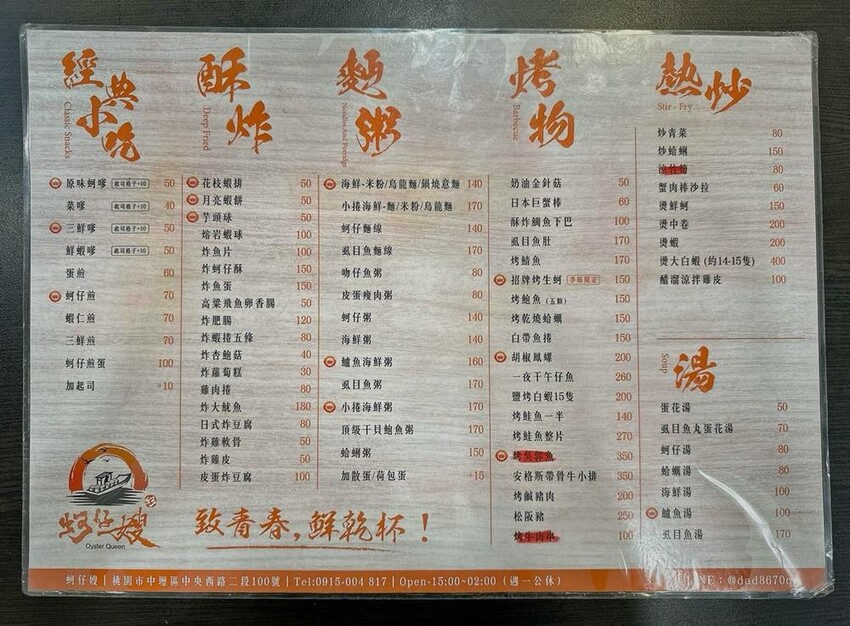 經典小吃
Classic Snacks
原味蚵嗲 起司格子+10 50
菜嗲 起司格子+10 40
三鮮嗲 起司格子+10 50
鮮蝦嗲 起司格子+10 50
蛋煎 60
蚵仔煎 70
蝦仁煎 70
三鮮煎 70
蚵仔煎蛋 100
加起司 +10
酥炸
Deep Fried
花枝蝦排 50
月亮蝦餅 50
芋頭球 50
熔岩蝦球 100
炸魚片 100
炸蚵仔酥 150
炸魚蛋 150
高梁飛魚卵香腸 50
炸肥腸 120
炸蝦捲五條 80
炸杏鮑菇 40
炸蘿蔔糕 30
雞肉捲 80
炸大魷魚 180
日式炸豆腐 80
炸雞軟骨 50
炸雞皮 50
皮蛋炸豆腐 100
麵粥
Noodles And Porridge
海鮮-米粉/烏龍麵/鍋燒意麵 140
小捲海鮮-麵/米粉/烏龍麵 170
蚵仔麵線
虱目魚麵線 170
吻仔魚粥 80
皮蛋瘦肉粥 80
蚵仔粥 140
海鮮粥 140
鱸魚海鮮粥 160
虱目魚粥 170
小捲海鮮粥 170
頂級干貝鮑魚粥 170
蛤蜊粥 150
加散蛋/荷包蛋 +15
烤物
Barbecue
奶油金針菇 50
日本巨蟹棒 60
酥炸鯛魚下巴 100
虱目魚肚 170
烤鯖魚 170
招牌烤生蚵 季節限定 150
烤鮑魚(五顆) 150
烤乾燒蛤蠣 150
白帶魚捲 150
胡椒鳳螺 200
一夜干午仔魚 260
鹽烤白蝦15隻 200
烤鮭魚一半 140
烤鮭魚整片 270
烤吳郭魚 350
安格斯帶骨牛小排 350
烤鹹豬肉 200
松阪豬 250
烤牛肉串 100
熱炒
Stir - Fry
炒青菜 80
炒蛤蜊 150
涼竹筍 80
蟹肉棒沙拉 60
燙鮮蚵 150
燙中卷 200
燙蝦 200
燙大白蝦 (約14-15隻) 400
醋溜涼拌雞皮 100
湯
Soup
蛋花湯 50
虱目魚丸蛋花湯 70
蚵仔湯 80
蛤蠣湯 80
海鮮湯 100
鱸魚湯 100
虱目魚湯 170
蚵仔嫂
Oyster Queen
致青春,鮮乾杯!
蚵仔嫂|桃園市中壢區中央西路二段100號|Tel:0915-004 817|Open-15:00~02:00 (週一公休) LINE:@dad8670q